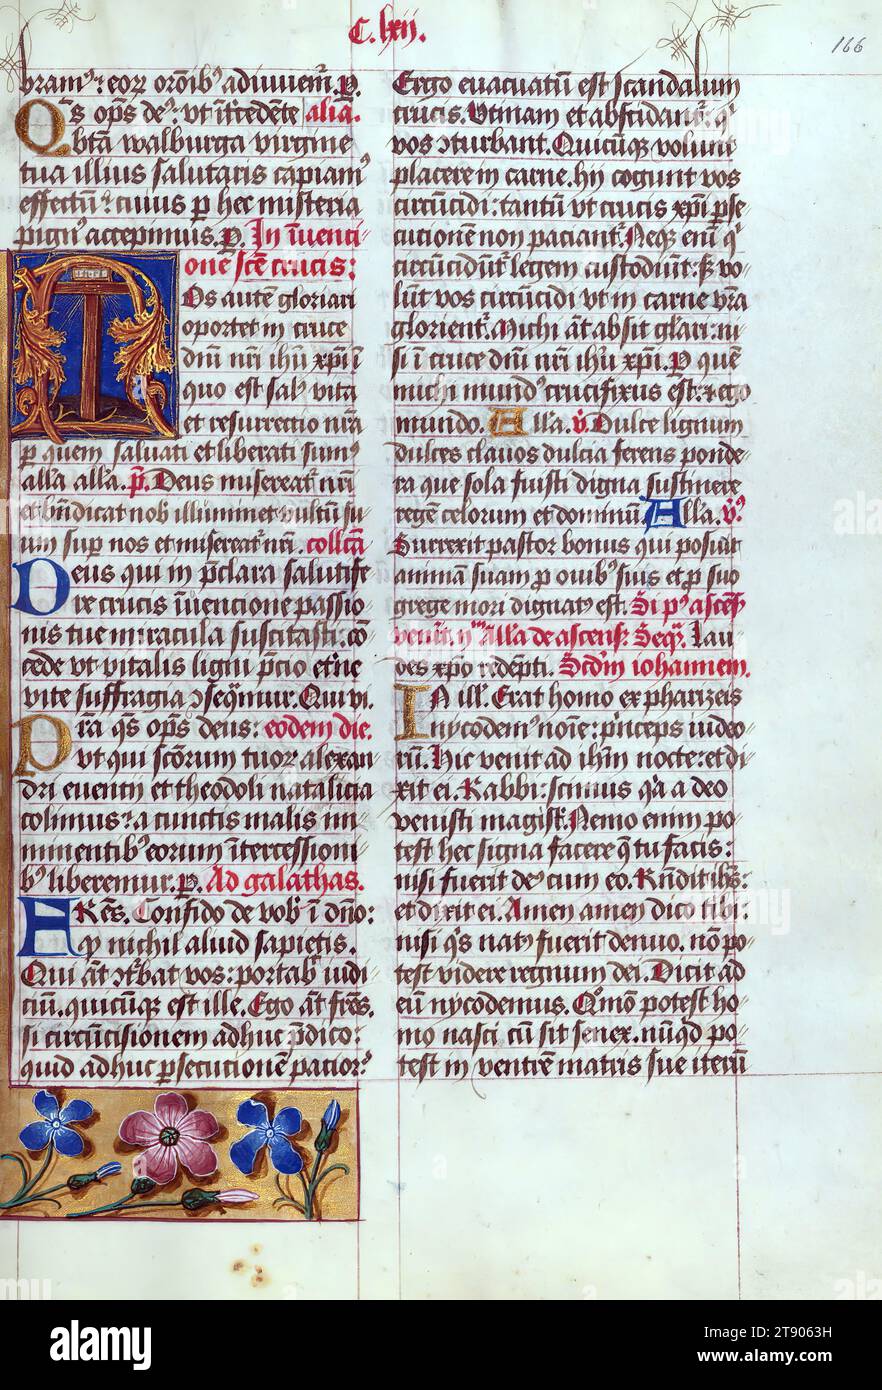 C. lxij.
166
bramꝰ ⁊ eoꝝ oro̅ibꝰ adiuuem̅. P.
Qs op̅s deꝰ: vt it̅cedente alia̅.
Bt̅a walburga virgine
tua illius salutaris capiamꝰ
effectu̅ ⁊ cuius ꝑ hec misteria
pignꝰ accepimus. P. In i̅uenci-
one sc̅e crucis:
Nos autem gloriari
oportet in cruce
dn̅i nr̅i ihu̅ xpi̅ i̅
quo est salꝰ vita
et resurrectio nr̅a
ꝑ quem saluati et liberati sumꝰ
all'a all'a. p̅. Deus misereat̉ nr̅i
et bn̅dicat nob illuminet vultu̅ su-
um sup nos et misereat̉ nr̅i. collc̅a
Deus qui in p̅clara salutife-
re crucis i̅uencione passio-
nis tue miracula suscitasti: co̅-
cede vt vitalis ligni p̅cio et̉ne
vite suffragia ɔseq̅mur. Qui vi.
Pr̅a q̅s op̅s deus: eodem die.
vt qui sc̅orum tuoꝝ alexan-
dri euentij et theodoli natalicia
colimus ⁊ a cunctis malis im-
minentibꝰ eorum i̅tercessioni-
bꝰ liberemur. P. Ad galathas.
FRes̅. Confido de vobꝰ i̅ dn̅o:
qꝫ nichil aliud sapietis.
Qui au̅t ɔt̉bat vos: portabꝰ iudi-
ciu̅. quicu̅qꝫ est ille. Ego au̅t fre̅s.
si circu̅cisionem adhuc p̅dico:
quid adhuc ꝑsecutione̅ pacior?
Ergo euacuatu̅ est scandalum
crucis. Vtinam et abscidant̉: qͥ
vos ɔturbant. Quicu̅qꝫ volunt
placere in carne. hij cogunt vos
circu̅cidi: tantu̅ vt crucis xpi̅ ꝑse-
cutionem non paciant̉. Neqꝫ eni̅ qͥ
circu̅cidu̅t̉ legem custodiu̅t: sꝫ vo-
lu̅t vos circu̅cidi vt in carne vr̅a
glorient̉. Michi au̅t absit gl̅ari: ni-
si i̅ cruce dn̅i nr̅i ihu̅ xpi̅. P quem
michi mundꝰ crucifixus est: ⁊ ego
mundo. All'a. v̉. Dulce lignum
dulces clauos dulcia ferens ponde-
ra que sola fuisti digna sustinere
regē celorum et dominu̅. All'a. v̉.
Surrexit pastor bonus qui posuit
animam suam p ouibꝰ suis et p suo
grege mori dignatꝰ est. Si pꝰ ascens̉
venit̅ in̅ All'a de ascens̉. Seqꝫ. Lau-
des xpo̅ redempti. Scdm̅ iohannem.
IN ill'. Erat homo ex phariseis
nycodemꝰ noi̅e: p̉nceps iudeo-
ru̅. Hic venit ad ihm̅ nocte: et di-
xit ei. Rabbi: scimus qͥa a deo
venisti magist̉. Nemo enim po-
test hec signa facere q̅ tu facis:
nisi fuerit deꝰ cum eo. Rn̅dit ihs̅:
et dixit ei. Amen amen dico tibi:
nisi q̉s natꝰ fuerit denuo. no̅ po-
test videre regnum dei. Dicit ad
eu̅ nycodemus. Quo̅mo̅ potest ho-
mo nasci cu̅ sit senex. nu̅qͥd po-
test in ventre̅ matris sue iteru̅
alamy
Image ID: 2T9063H
www.alamy.com